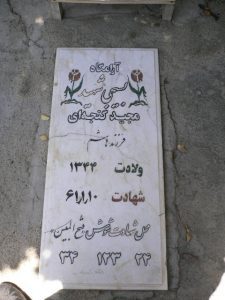 آرامگاه
بسیجی شهید
مجید گنجه‌ای
فرزند هاشم
ولادت ۱۳۴۴
شهادت ۶۱٫۱٫۱۰
محل شهادت شوش فتح المبین
۳۴ ۱۲۳ ۲۴